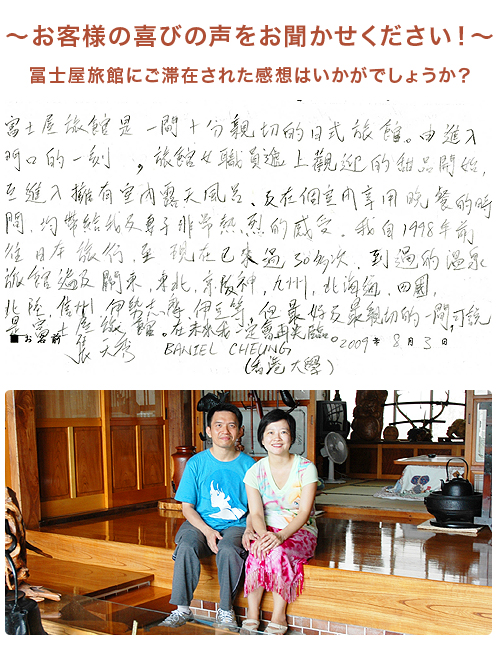 ～お客様の喜びの声をお聞かせください！～
冨士屋旅館にご滞在された感想はいかがでしょうか？
富士屋旅館是一間十分親切的日式旅館。由進入
門口的一刻，旅館女職員遞上歡迎的甜品開始，
至進入擁有室內露天風呂、及在個室內享用晚餐的時
間，均帶給我及妻子非常熱烈的感受。我自1998年前
往日本旅行，至現在已來過30多次，到過的溫泉
旅館遍及關東，東北，京阪神，九州，北海道，四國，
北陸，信州，伊勢志摩，伊豆等，但最好及最親切的一間，可說
是富士屋旅館。在未來我一定會再光臨。2009年8月3日
■お名前 張天秀 DANIEL CHEUNG
(香港大學)